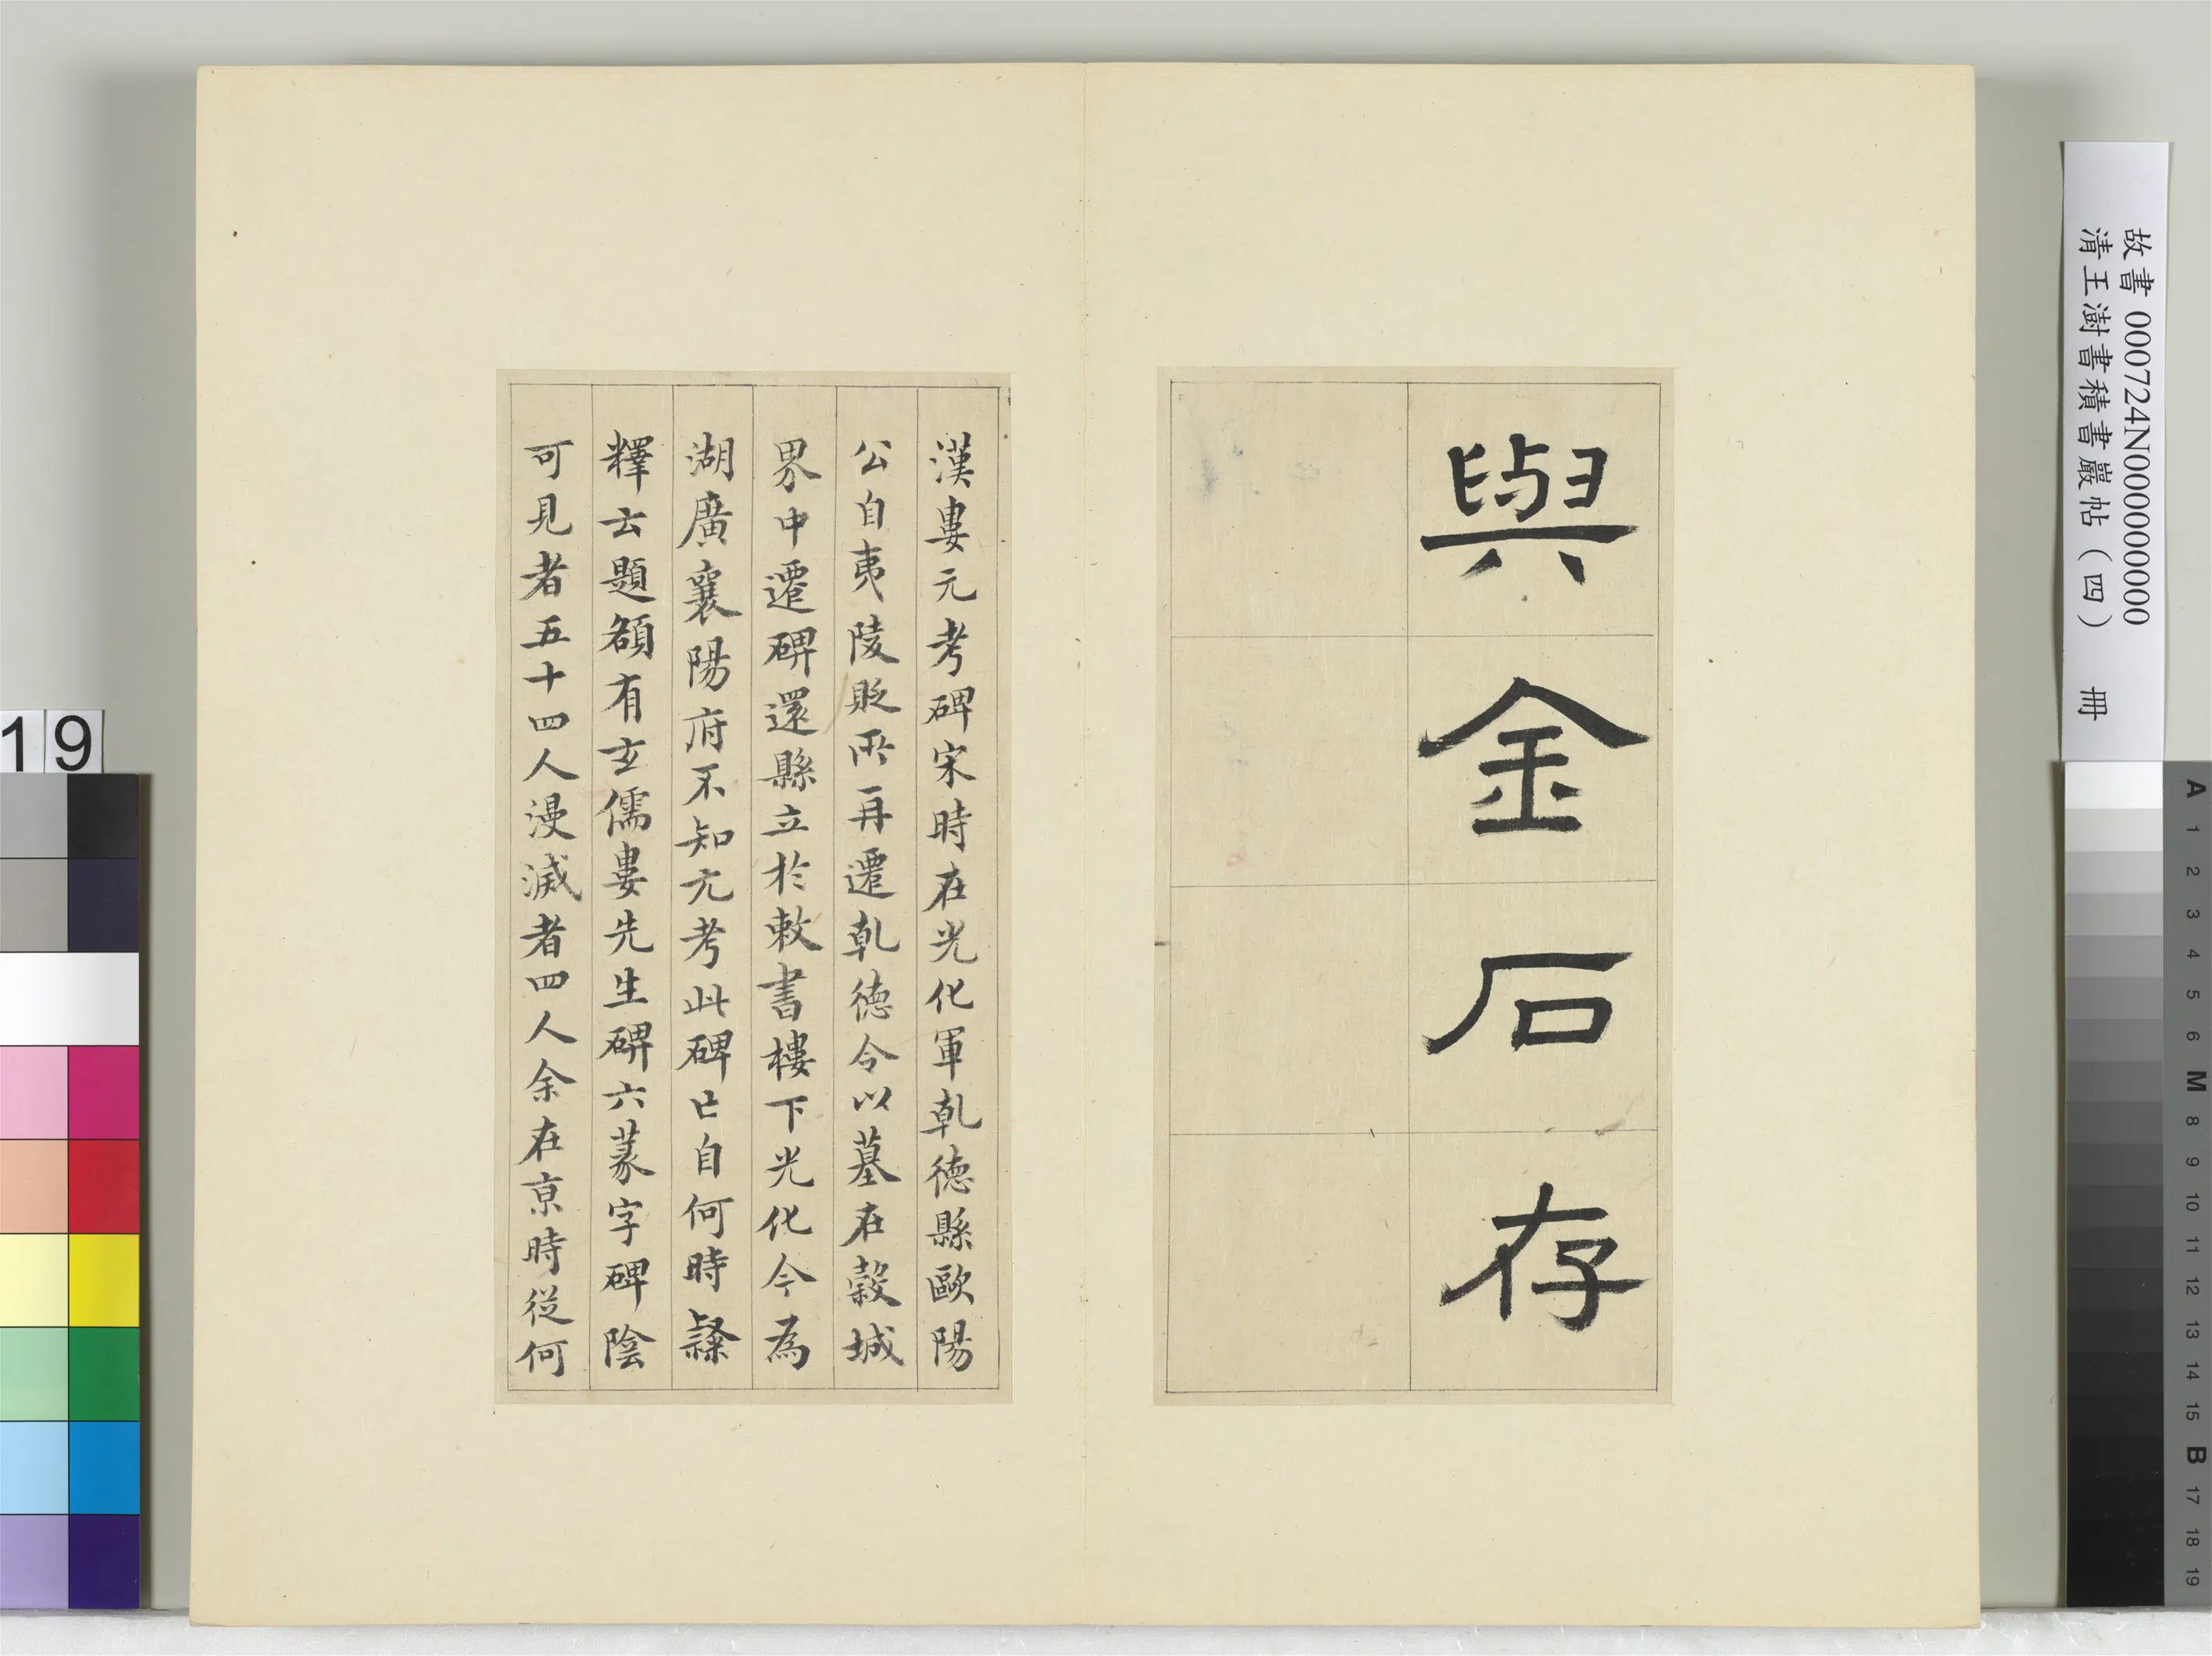 與金石存
漢婁元考碑宋時在光化軍乾德縣歐陽
公自夷陵貶所再遷乾德令以墓在穀城
界中遷碑還縣立於敕書樓下光化今為
湖廣襄陽府不知元考此碑亡自何時隸
釋云題額有玄儒婁先生碑六篆字碑陰
可見者五十四人漫滅者四人余在京時從何
故書 000724N000000000
清王澍書積書巖帖（四） 冊
19
A 1 2 3 4 5 6 M 8 9 10 11 12 13 14 15 B 17 18 19